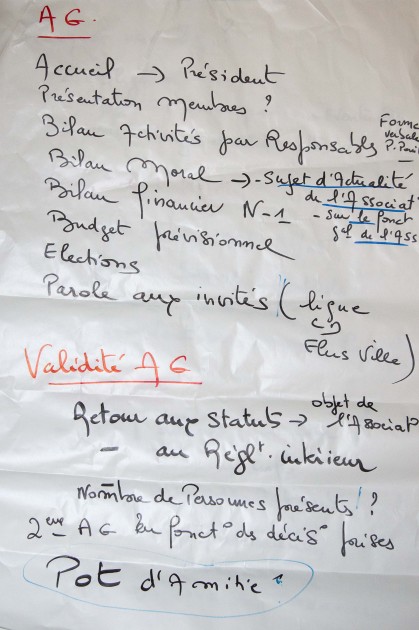 AG.
Accueil → Président
Présentation membres ?
Bilan Activités par Responsables
P. Point
Bilan Moral → - Sujet d'Actualité
de l'Associat°
Bilan financier N-1 - sur le fonct
gal de l'Ass
Budget prévisionnel
Elections
Parole aux invités ( ligue
CD
Elus Ville)
Validité AG
Retour aux statuts → objet de l'Associat°
— au Règlt. intérieur
Nombre de Personnes présents ?
2eme AG en fonct° ds décis° prises
Pot d'Amitié